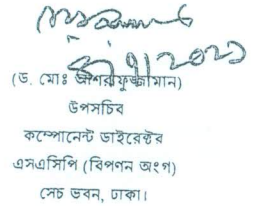 (ড. মোঃ আশরাফুজ্জামান)
উপসচিব
কম্পোনেন্ট ডাইরেক্টর
এসএসিপি (বিপণন অংগ)
সেচ ভবন, ঢাকা।